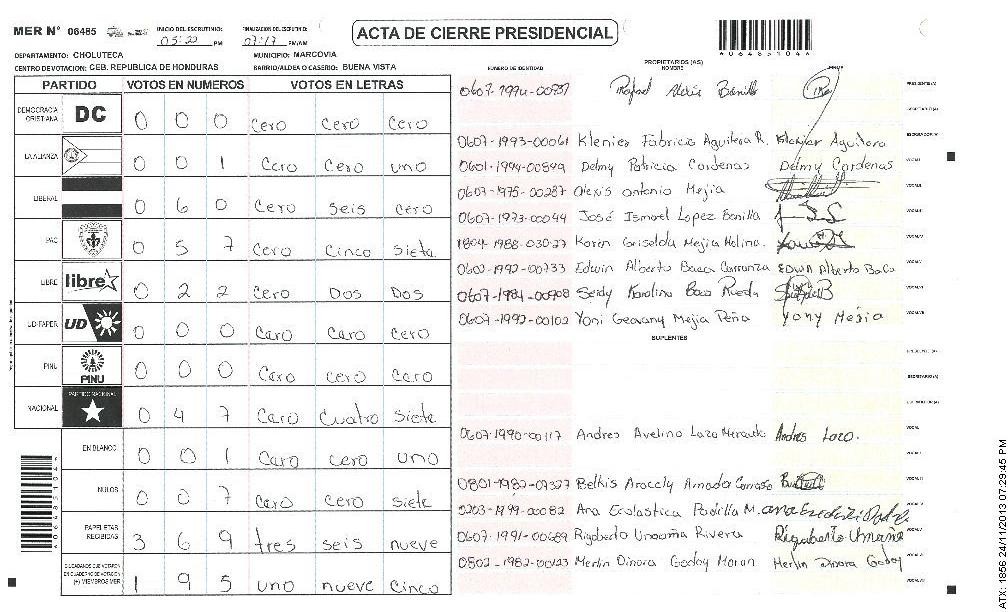 MER N° 06485
INICIO DEL ESCRUTINIO: 05:22 PM
FINALIZACION DEL ESCRUTINIO: 07:17 PM/AM
ACTA DE CIERRE PRESIDENCIAL
DEPARTAMENTO: CHOLUTECA MUNICIPIO: MARCOVIA
CENTRO DE VOTACION: CEB. REPUBLICA DE HONDURAS BARRIO/ALDEA O CASERIO: BUENA VISTA
PARTIDO VOTOS EN NUMEROS VOTOS EN LETRAS
DEMOCRACIA CRISTIANA DC 0 0 0 Cero Cero Cero
LA ALIANZA 0 0 1 Cero Cero uno
LIBERAL 0 6 0 Cero seis cero
PAC 0 5 7 Cero Cinco siete
LIBRE libre 0 2 2 Cero Dos Dos
UD-FAPER UD 0 0 0 Cero Cero Cero
PINU PINU 0 0 0 Cero cero Cero
NACIONAL PARTIDO NACIONAL 0 4 7 Cero Cuatro siete
EN BLANCO 0 0 1 Cero cero uno
NULOS 0 0 7 Cero Cero siete
PAPELETAS RECIBIDAS 3 6 9 tres seis nueve
CIUDADANOS QUE VOTARON EN CUADERNO DE VOTACION (+) MIEMBROS MER 1 9 5 uno nueve Cinco
PROPIETARIOS (AS)
NUMERO DE IDENTIDAD NOMBRE FIRMA
Rafael Alexis Bonilla
0607-1993-00061 Klenier Fabricio Aguilera R. Klenier Aguilera
0601-1994-00899 Delmy Patricia Cardenas Delmy Cardenas
0607-1975-00287 Alexis Antonio Mejia
0607-1973-00044 José Ismael Lopez Bonilla
1804-1988-03027 Karen Griselda Mejia Molina.
0602-1992-00733 Edwin Alberto Baca Carranza Edwin Alberto Baca
0607-1984-00908 Seidy Karolina Baca Rueda
0607-1992-00102 Yoni Geovany Mejia Peña Yony Mejia
SUPLENTES
0607-1990-00117 Andres Avelino Lazo Mercado Andres Lazo.
0801-1982-07327 Belkis Aracely Amador
0203-1949-00082 Ana Ecolastica Padilla M.
0607-1991-00689 Rigoberto Umaña Rivera Rigoberto Umaña
0502-1982-00123 Merlin Dinora Godoy Moran Merlin Dinora Godoy
ATX: 1856 24/11/2013 07:29:45 PM